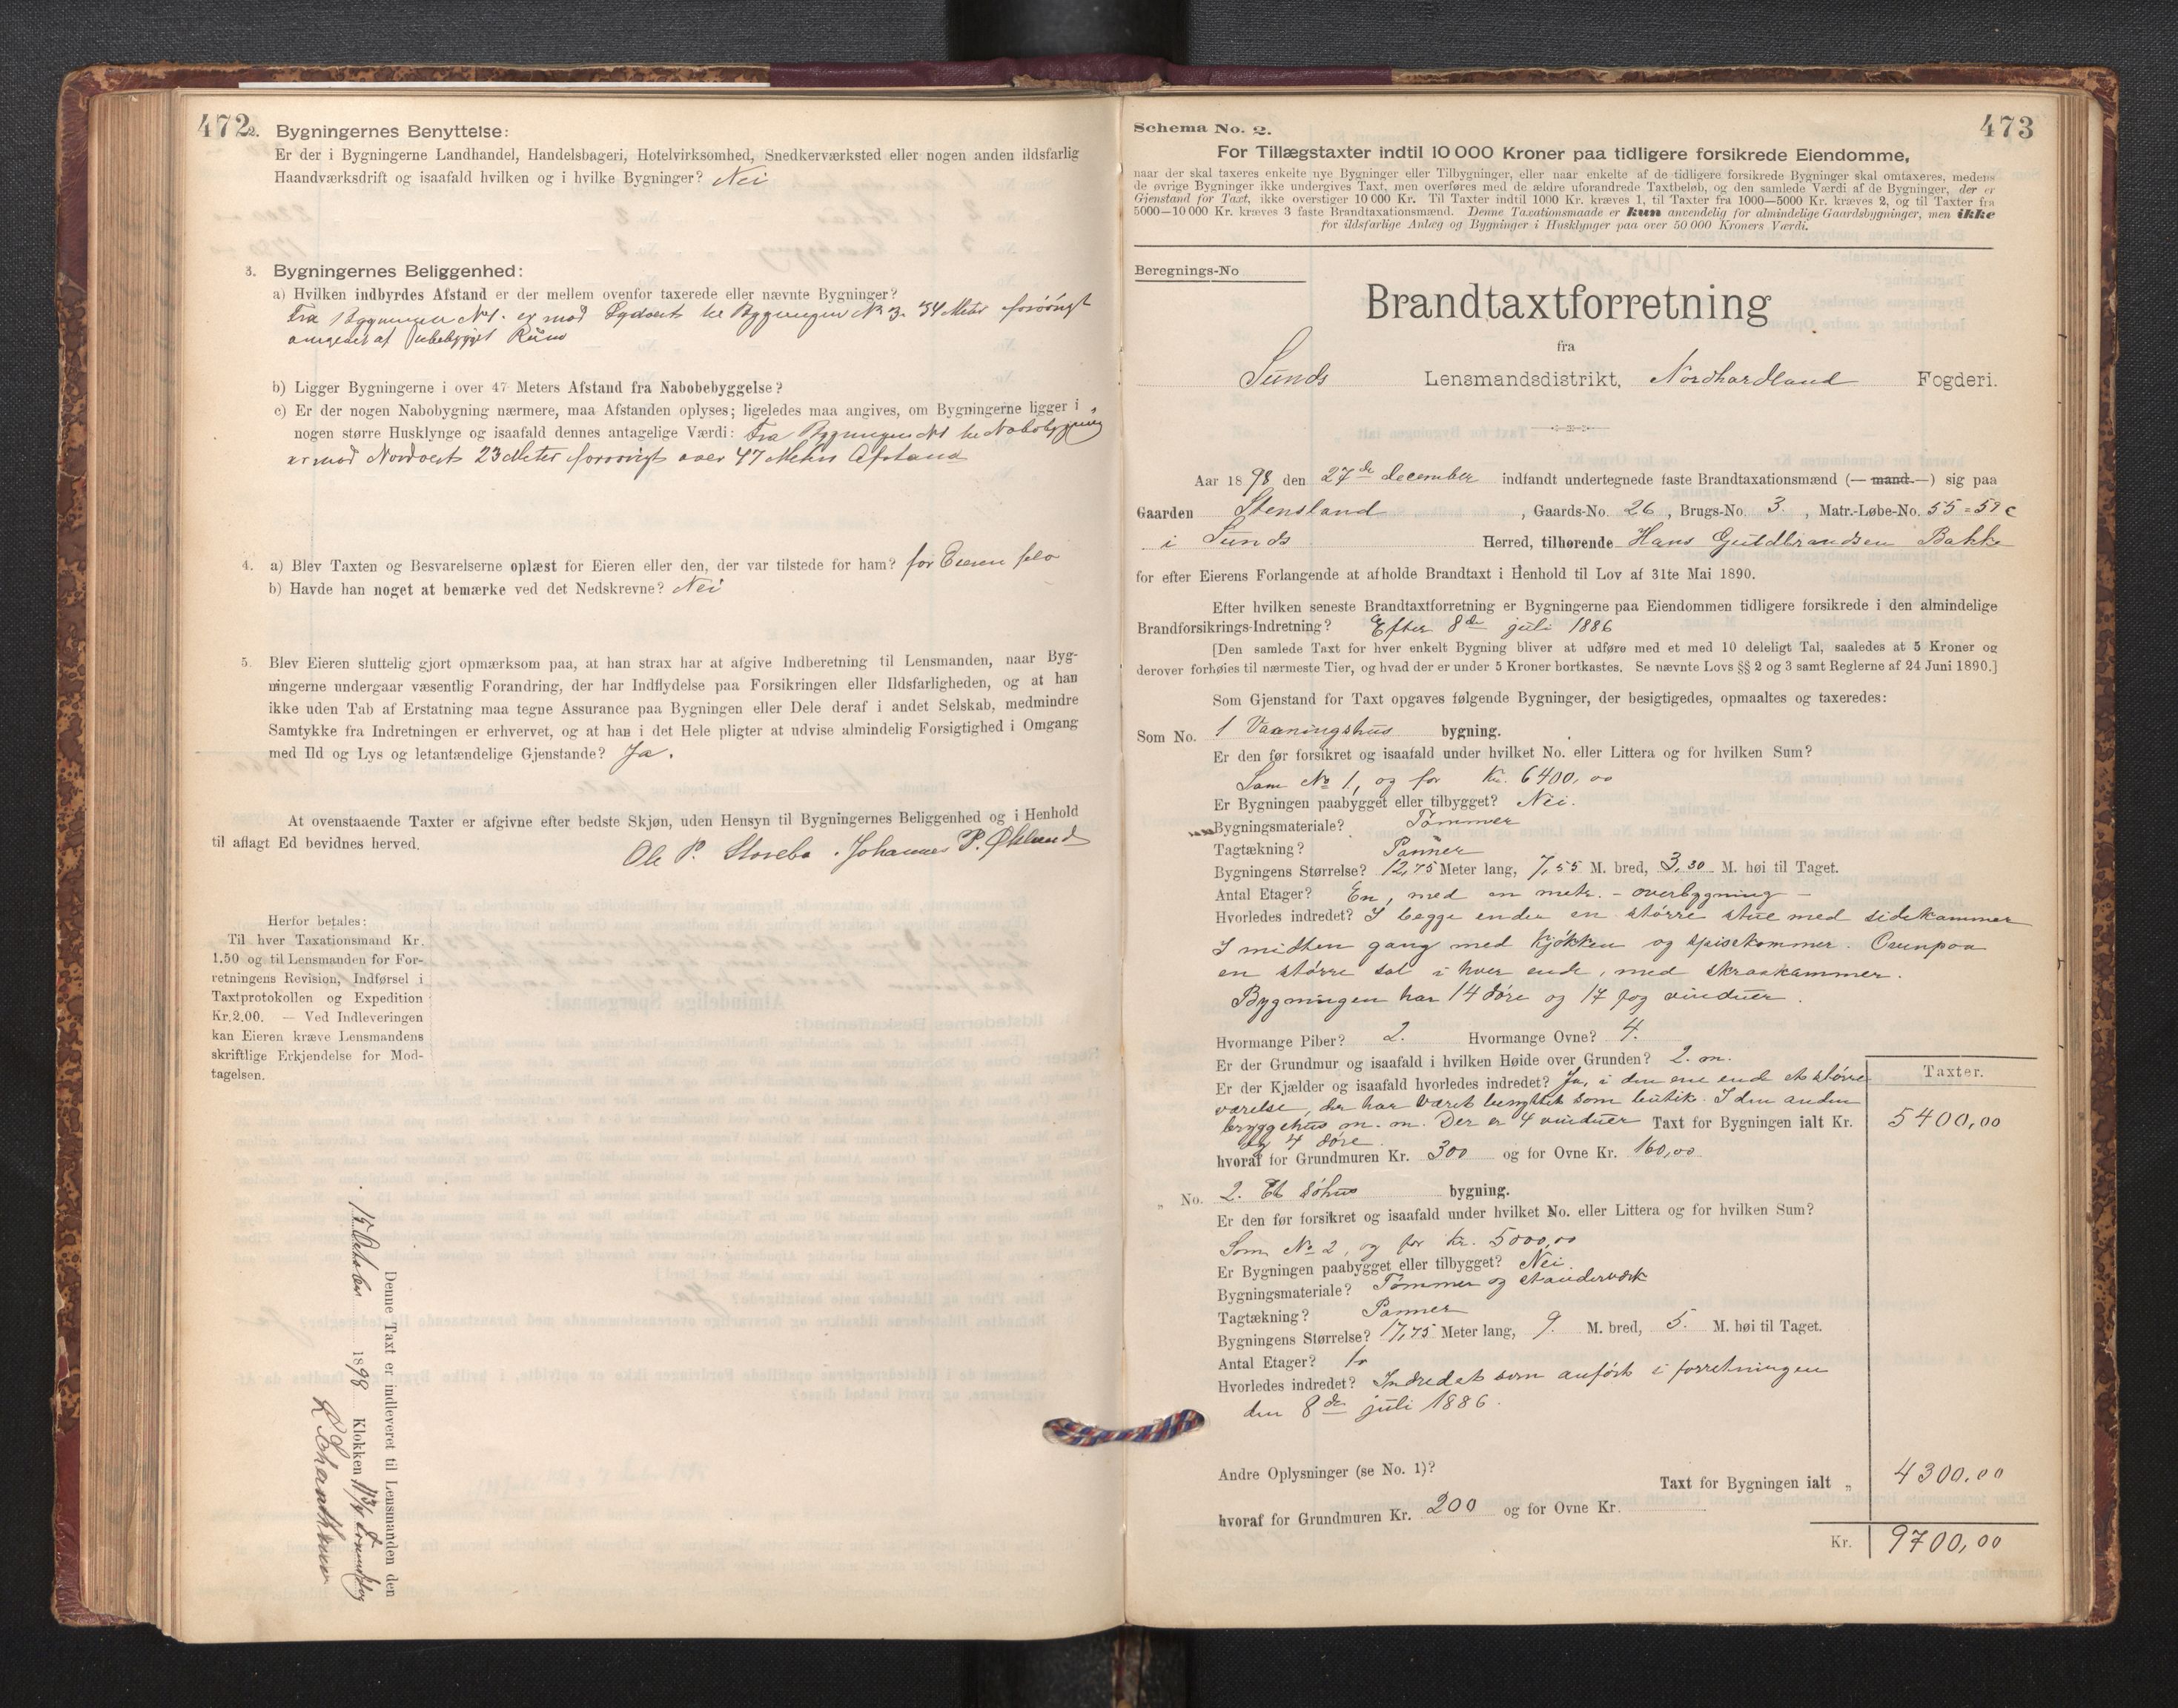 472
2. Bygningernes Benyttelse:
Er der i Bygningerne Landhandel, Handelsbageri, Hotelvirksomhed, Snedkerværksted eller nogen anden ildsfarlig
Haandværksdrift og isaafald hvilken og i hvilke Bygninger? Nei
3. Bygningernes Beliggenhed:
a) Hvilken indbyrdes Afstand er der mellem ovenfor taxerede eller nævnte Bygninger?
Fra Bygningen No 1. er mod Sydvest til Bygningen No 3. 34 Meter forøvrigt
omgivet af ubebygget Rum
b) Ligger Bygningerne i over 47 Meters Afstand fra Nabobebyggelse?
c) Er der nogen Nabobygning nærmere, maa Afstanden oplyses; ligeledes maa angives, om Bygningerne ligger i
nogen større Husklynge og isaafald dennes antagelige Værdi: Fra Bygningen No 1 til Nabobygning
er mod Nordvest 23 Meter forøvrigt over 47 Meters Afstand
4. a) Blev Taxten og Besvarelserne oplæst for Eieren eller den, der var tilstede for ham? for Eieren selv
b) Havde han noget at bemærke ved det Nedskrevne? Nei
5. Blev Eieren sluttelig gjort opmærksom paa, at han strax har at afgive Indberetning til Lensmanden, naar Byg-
ningerne undergaar væsentlig Forandring, der har Indflydelse paa Forsikringen eller Ildsfarligheden, og at han
ikke uden Tab af Erstatning maa tegne Assurance paa Bygningen eller Dele deraf i andet Selskab, medmindre
Samtykke fra Indretningen er erhvervet, og at han i det Hele pligter at udvise almindelig Forsigtighed i Omgang
med Ild og Lys og letantændelige Gjenstande? Ja.
At ovenstaaende Taxter er afgivne efter bedste Skjøn, uden Hensyn til Bygningernes Beliggenhed og i Henhold
til aflagt Ed bevidnes herved.
Ole P. Storebø. Johannes P. Økland
Herfor betales:
Til hver Taxationsmand Kr.
1.50 og til Lensmanden for For-
retningens Revision, Indførsel i
Taxtprotokollen og Expedition
Kr. 2.00. — Ved Indleveringen
kan Eieren kræve Lensmandens
skriftlige Erkjendelse for Mod-
tagelsen.
Denne Taxt er indleveret til Lensmanden den
1898 Klokken 11 3/4
473
Schema No. 2.
For Tillægstaxter indtil 10 000 Kroner paa tidligere forsikrede Eiendomme,
naar der skal taxeres enkelte nye Bygninger eller Tilbygninger, eller naar enkelte af de tidligere forsikrede Bygninger skal omtaxeres, medens
de øvrige Bygninger ikke undergives Taxt, men overføres med de ældre uforandrede Taxtbeløb, og den samlede Værdi af de Bygninger, der er
Gjenstand for Taxt, ikke overstiger 10 000 Kr. Til Taxter indtil 1000 Kr. kræves 1, til Taxter fra 1000—5000 Kr. kræves 2, og til Taxter fra
5000—10 000 Kr. kræves 3 faste Brandtaxationsmænd. Denne Taxationsmaade er kun anvendelig for almindelige Gaardsbygninger, men ikke
for ildsfarlige Anlæg og Bygninger i Husklynger paa over 50 000 Kroners Værdi.
Beregnings-No
Brandtaxtforretning
fra
Sunds Lensmandsdistrikt, Nordhordland Fogderi.
Aar 1898 den 27de december indfandt undertegnede faste Brandtaxationsmænd (— mand —) sig paa
Gaarden Stensland, Gaards-No. 26, Brugs-No. 3., Matr.-Løbe-No. 55 = 59 c
i Sunds Herred, tilhørende Hans Guldbrandsen Bakke
for efter Eierens Forlangende at afholde Brandtaxt i Henhold til Lov af 31te Mai 1890.
Efter hvilken seneste Brandtaxtforretning er Bygningerne paa Eiendommen tidligere forsikrede i den almindelige
Brandforsikrings-Indretning? Efter 8de juli 1886
[Den samlede Taxt for hver enkelt Bygning bliver at udføre med et med 10 deleligt Tal, saaledes at 5 Kroner og
derover forhøies til nærmeste Tier, og hvad der er under 5 Kroner bortkastes. Se nævnte Lovs §§ 2 og 3 samt Reglerne af 24 Juni 1890.]
Som Gjenstand for Taxt opgaves følgende Bygninger, der besigtigedes, opmaaltes og taxeredes:
Som No. 1 Vaaningshus bygning.
Er den før forsikret og isaafald under hvilket No. eller Littera og for hvilken Sum?
Som No 1, og for Kr. 6400,00
Er Bygningen paabygget eller tilbygget? Nei.
Bygningsmateriale? Tømmer
Tagtækning? Panner
Bygningens Størrelse? 12,75 Meter lang, 7,55 M. bred, 3,30 M. høi til Taget.
Antal Etager? En, med en metr. - overbygning -
Hvorledes indredet? I begge ender en større stue med sidekammer
I midten gang med kjøkken og spisekammer. Ovenpaa
en større sal i hver ende, med skraakammer.
Bygningen har 14 døre og 17 fag vinduer.
Hvormange Piber? 2. Hvormange Ovne? 4.
Er der Grundmur og isaafald i hvilken Høide over Grunden? 2. m.
Er der Kjælder og isaafald hvorledes indredet? Ja, i den ene ende et større
værelse, der har været benyttet som butik. I den anden
bryggehus m. m. Der er 4 vinduer Taxt for Bygningen ialt Kr.
og 4 døre.
Taxter.
5400,00
hvoraf for Grundmuren Kr. 300 og for Ovne Kr. 160,00
" No. 2. Et søhus bygning.
Er den før forsikret og isaafald under hvilket No. eller Littera og for hvilken Sum?
Som No 2, og for Kr. 5000,00
Er Bygningen paabygget eller tilbygget? Nei.
Bygningsmateriale? Tømmer og standerværk
Tagtækning? Panner
Bygningens Størrelse? 17,75 Meter lang, 9. M. bred, 5. M. høi til Taget.
Antal Etager? to
Hvorledes indredet? Indredet som anført i forretningen
den 8de juli 1886.
Andre Oplysninger (se No. 1)?
Taxt for Bygningen ialt " 4300,00
hvoraf for Grundmuren Kr. 200 og for Ovne Kr.
Kr. 9700,00